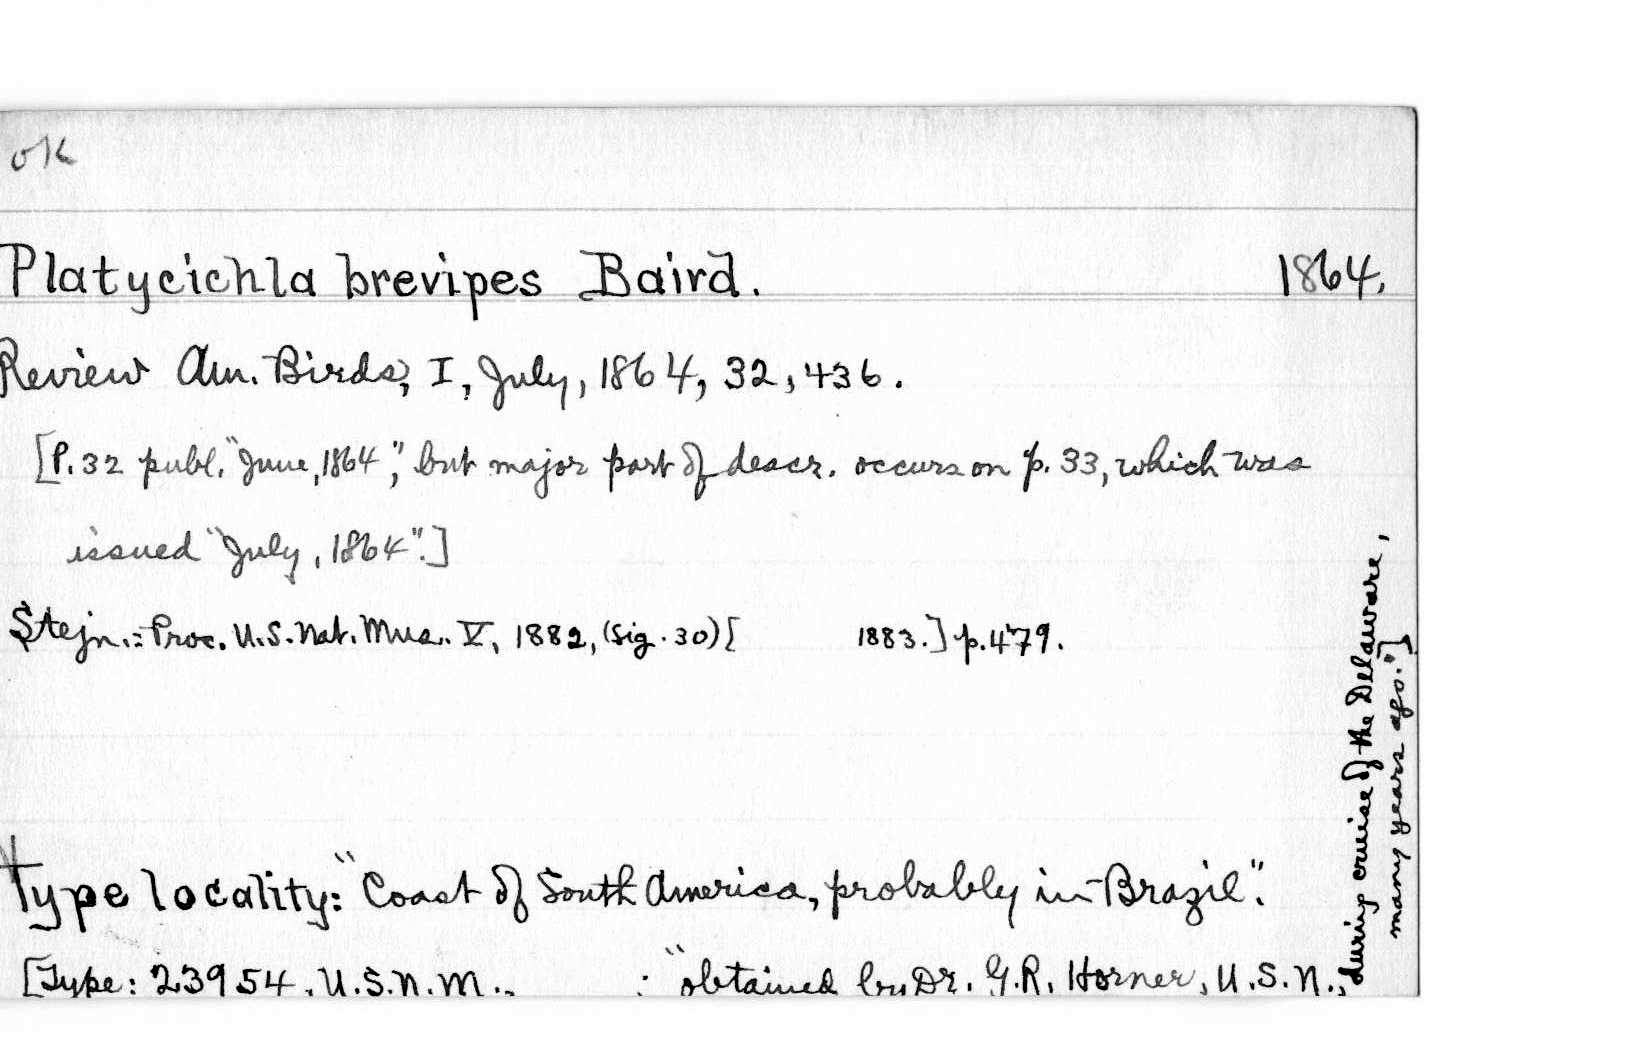 ok
Platycichla brevipes Baird. 1864.
Review Am. Birds, I, July, 1864, 32, 436.
[P. 32 publ. "June, 1864", but major part of descr. occurs on p. 33, which was
issued "July, 1864".]
Stejn.: Proc. U.S. Nat. Mus. V, 1882, (Sig. 30) [ 1883.] p. 479.
Type locality: "Coast of South America, probably in Brazil".
[Type: 23954, U.S.N.M., : "obtained by Dr. G.R. Horner, U.S.N.,
during cruise of the Delaware,
many years ago."]